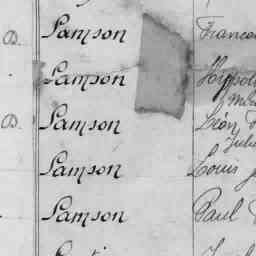 D. Samson Franço
Samson Hippol
D. Samson Léon
Samson Louis J
Samson Paul